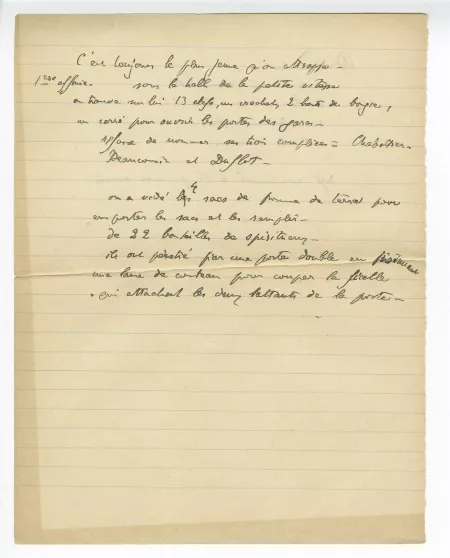 C'est toujours le plus jeune qu'on attrape –
1ère affaire. sous le hall de la petite vitesse
on trouve sur lui 13 clefs, un crochet, 2 bouts de bougie,
un carré pour ouvrir les portes des gares –
refuse de nommer ses trois complices – Chabatier –
Beaucousin et Duflot –
on a vidé les 4 sacs de pomme de terre pour
emporter les sacs et les remplir –
de 22 bouteilles de spiritueux –
ils ont pénétré par une porte double en
une lame de couteau pour couper la ficelle
qui attachait les deux battants de la porte –